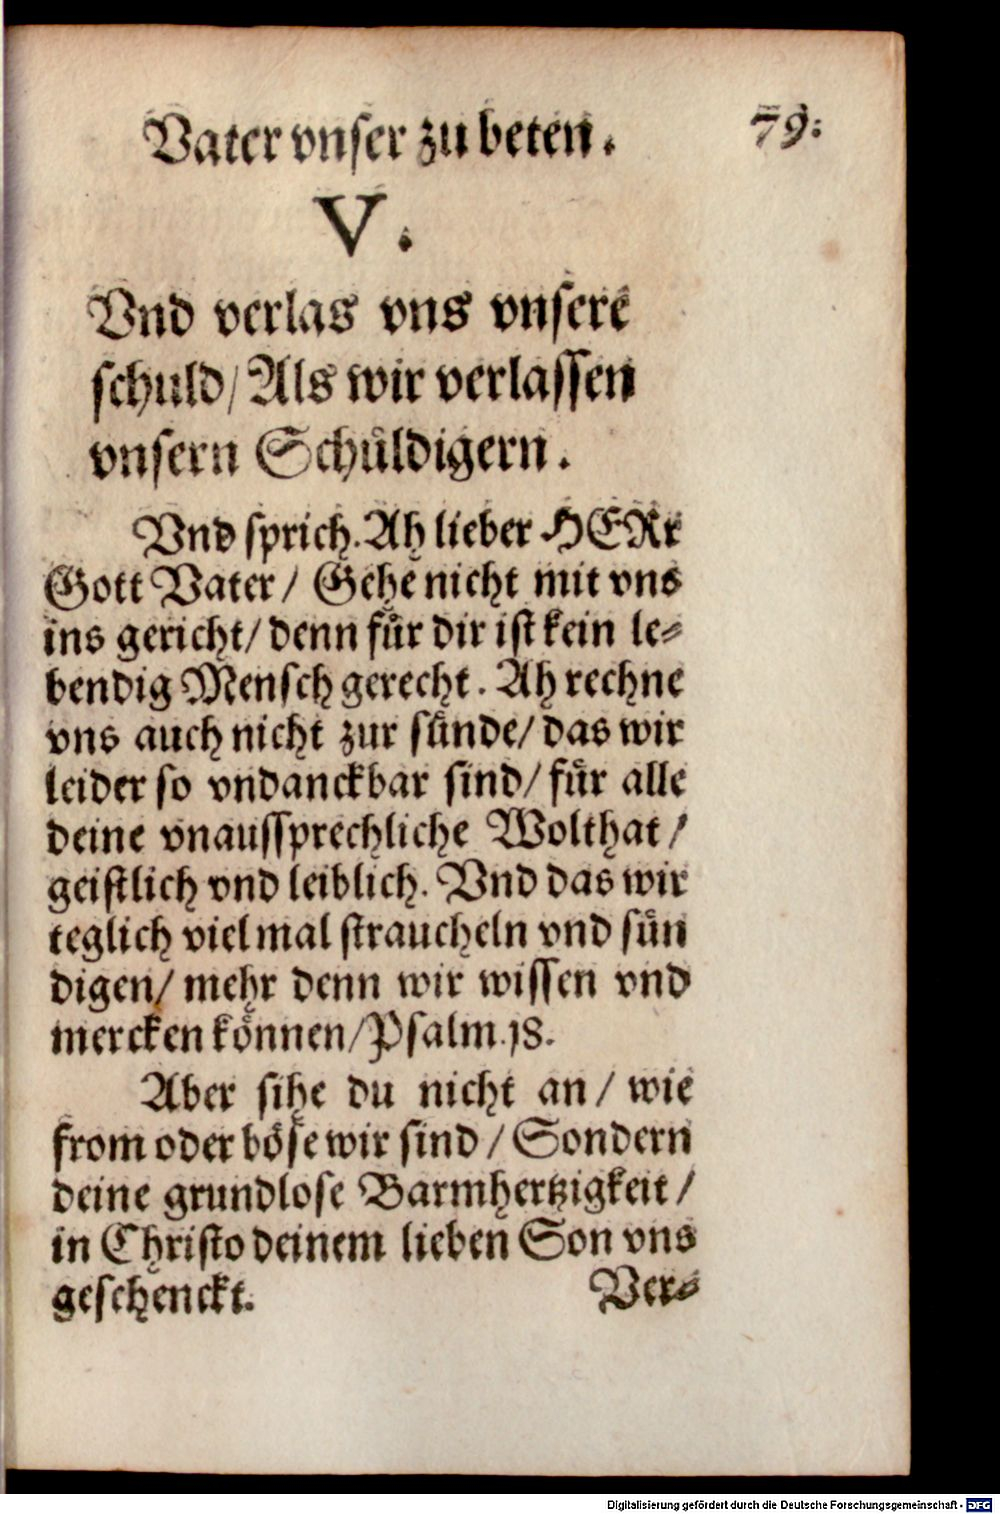 Vater vnser zu beten. 79.
V.
Vnd verlas vns vnsere
schuld/ Als wir verlassen
vnsern Schüldigern.
Vnd sprich. Ah lieber HERr
Gott Vater/ Gehe nicht mit vns
ins gericht/ denn für dir ist kein le-
bendig Mensch gerecht. Ah rechne
vns auch nicht zur sünde/ das wir
leider so vndanckbar sind/ für alle
deine vnaussprechliche Wolthat/
geistlich vnd leiblich. Vnd das wir
teglich viel mal straucheln vnd sün
digen/ mehr denn wir wissen vnd
mercken können/ Psalm. 18.
Aber sihe du nicht an/ wie
from oder böse wir sind/ Sondern
deine grundlose Barmhertzigkeit/
in Christo deinem lieben Son vns
geschenckt. Ver-
Digitalisierung gefördert durch die Deutsche Forschungsgemeinschaft - DFG